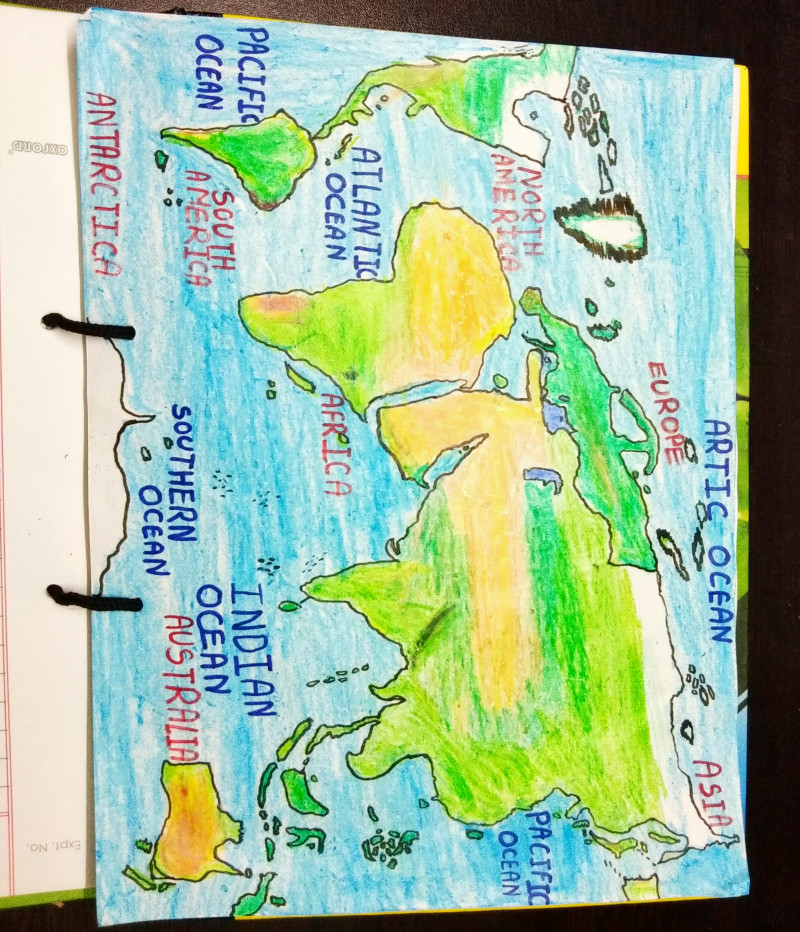 ARTIC OCEAN
EUROPE
ASIA
NORTH
AMERICA
PACIFIC
OCEAN
ATLANTIC
OCEAN
AFRICA
PACIFIC
OCEAN
SOUTH
AMERICA
INDIAN
OCEAN
AUSTRALIA
SOUTHERN
OCEAN
ANTARCTICA
OXFORD®
Expt. No.